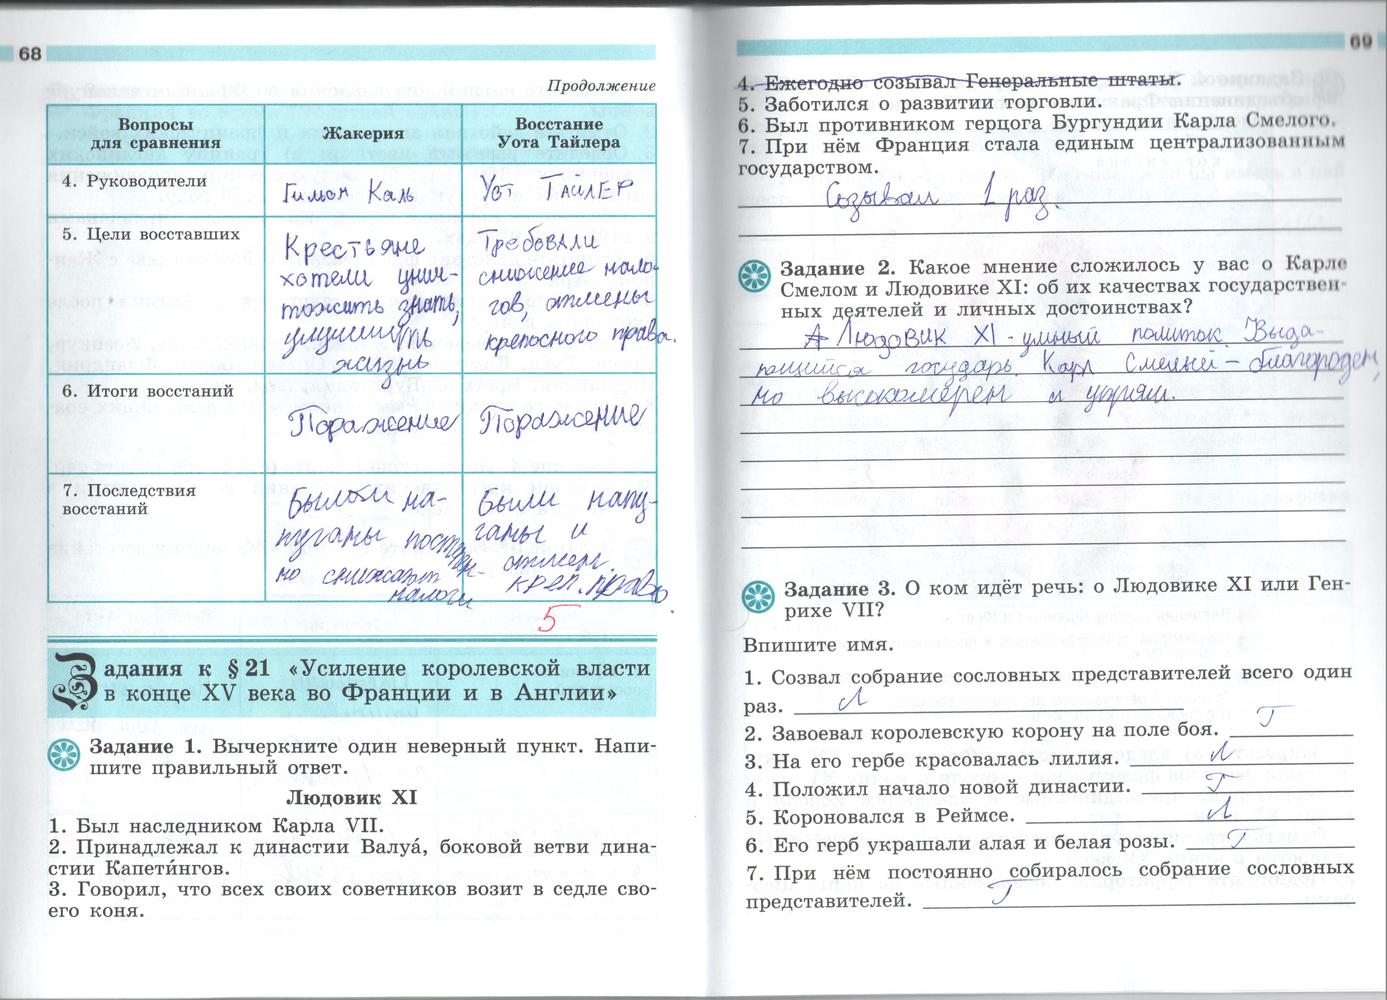 68
Продолжение
Вопросы для сравнения
Жакерия
Восстание Уота Тайлера
4. Руководители
Гильом Каль
Уот ТАЙЛЕР
5. Цели восставших
Крестьяне
хотели унич-
тожить знать,
улучшить
жизнь
Требовали
снижение нало-
гов, отмены
крепосного права.
6. Итоги восстаний
Поражение
Поражение
7. Последствия
восстаний
Были на-
пуганы постепен-
но снижают
налоги
Были напу-
ганы и
отмен.
креп. право.
5
Задания к § 21 «Усиление королевской власти
в конце XV века во Франции и в Англии»
Задание 1. Вычеркните один неверный пункт. Напи-
шите правильный ответ.
Людовик XI
1. Был наследником Карла VII.
2. Принадлежал к династии Валуа́, боковой ветви дина-
стии Капети́нгов.
3. Говорил, что всех своих советников возит в седле сво-
его коня.
69
4. Ежегодно созывал Генеральные штаты.
5. Заботился о развитии торговли.
6. Был противником герцога Бургундии Карла Смелого.
7. При нём Франция стала единым централизованным
государством.
Созывал 1 раз.
Задание 2. Какое мнение сложилось у вас о Карле
Смелом и Людовике XI: об их качествах государствен-
ных деятелей и личных достоинствах?
Людовик XI - умный политик. Выда-
ющийся государь. Карл Смелый – благороден,
но высокомерен и упрям.
Задание 3. О ком идёт речь: о Людовике XI или Ген-
рихе VII?
Впишите имя.
1. Созвал собрание сословных представителей всего один
раз. Л
2. Завоевал королевскую корону на поле боя. Г
3. На его гербе красовалась лилия. Л
4. Положил начало новой династии. Г
5. Короновался в Реймсе. Л
6. Его герб украшали алая и белая розы. Г
7. При нём постоянно собиралось собрание сословных
представителей. Г